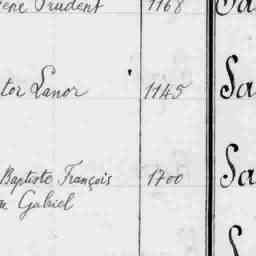 ène Prudent 1168 Sa
tor Lanor 1145 Sa
Baptiste François 1700 Sa
Gabriel